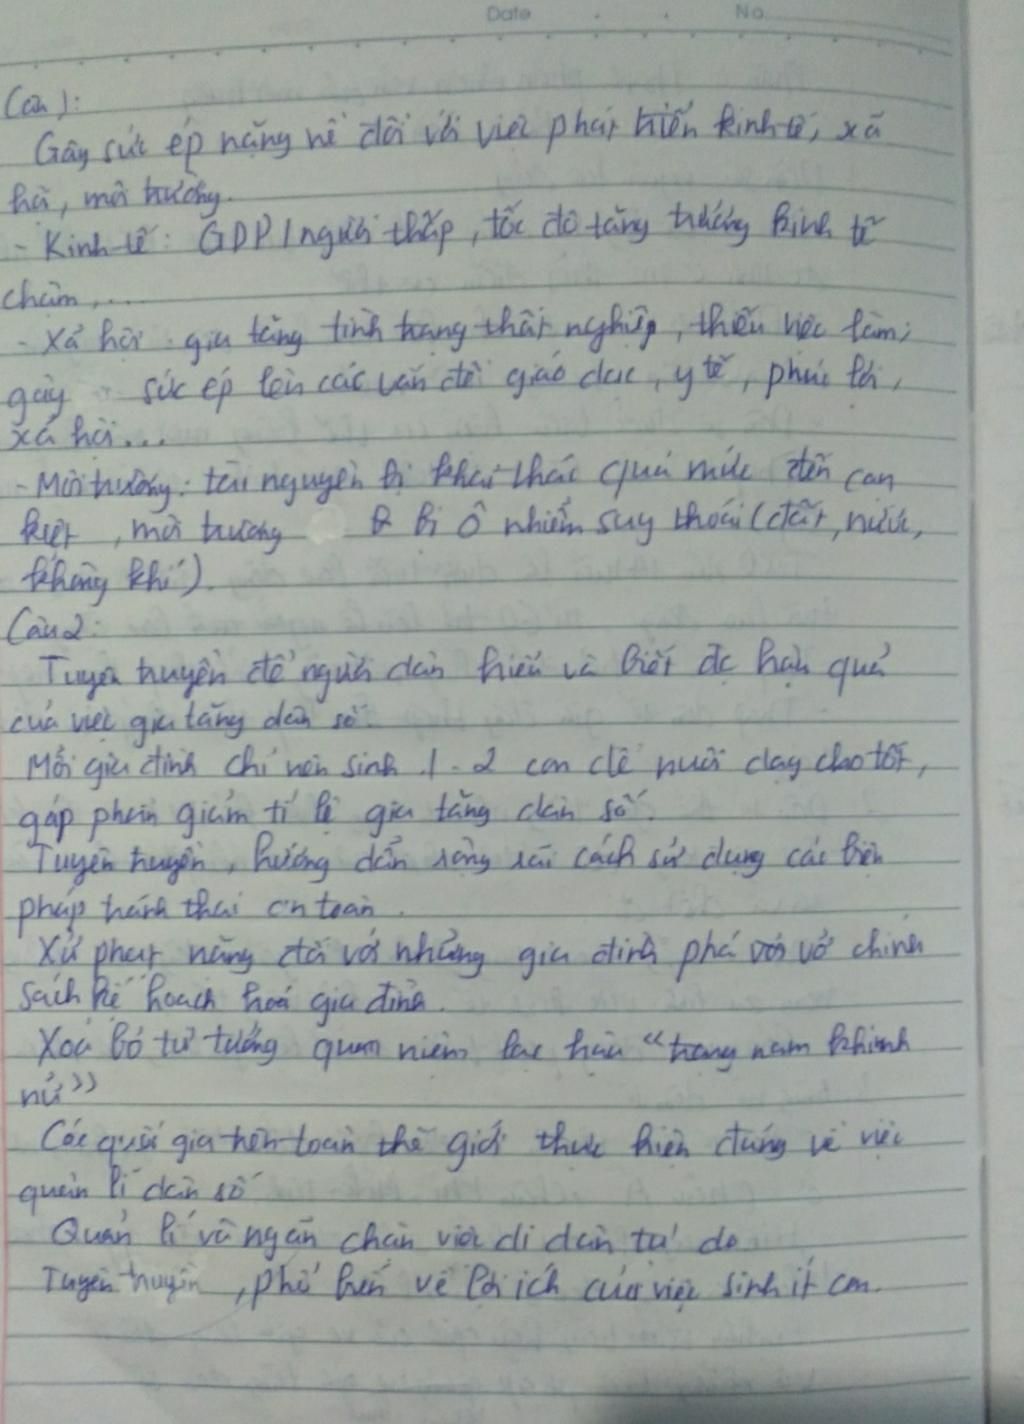 Date No
Câu 1:
Gây sức ép nặng nề đối với việc phát triển kinh tế, xã
hội, môi trường.
- Kinh tế: GDP/người thấp, tốc độ tăng trưởng kinh tế
chậm,...
- Xã hội: gia tăng tình trạng thất nghiệp, thiếu việc làm;
gây sức ép lên các vấn đề giáo dục, y tế, phúc lợi,
xã hội...
- Môi trường: tài nguyên bị khai thác quá mức đến cạn
kiệt, môi trường bị ô nhiễm suy thoái (đất, nước,
không khí).
Câu 2:
Tuyên truyền để người dân hiểu và biết đc hậu quả
của việc gia tăng dân số.
Mỗi gia đình chỉ nên sinh 1-2 con để nuôi dạy cho tốt,
góp phần giảm tỉ lệ gia tăng dân số.
Tuyên truyền, hướng dẫn rộng rãi cách sử dụng các biện
pháp tránh thai an toàn.
Xử phạt nặng đối với những gia đình phá vỡ chính
sách kế hoạch hoá gia đình.
Xoá bỏ tư tưởng quan niệm lạc hậu "trọng nam khinh
nữ"
Các quốc gia trên toàn thế giới thực hiện đúng về việc
quản lí dân số
Quản lí và ngăn chặn việc di dân tự do
Tuyên truyền, phổ biến về lợi ích của việc sinh ít con.